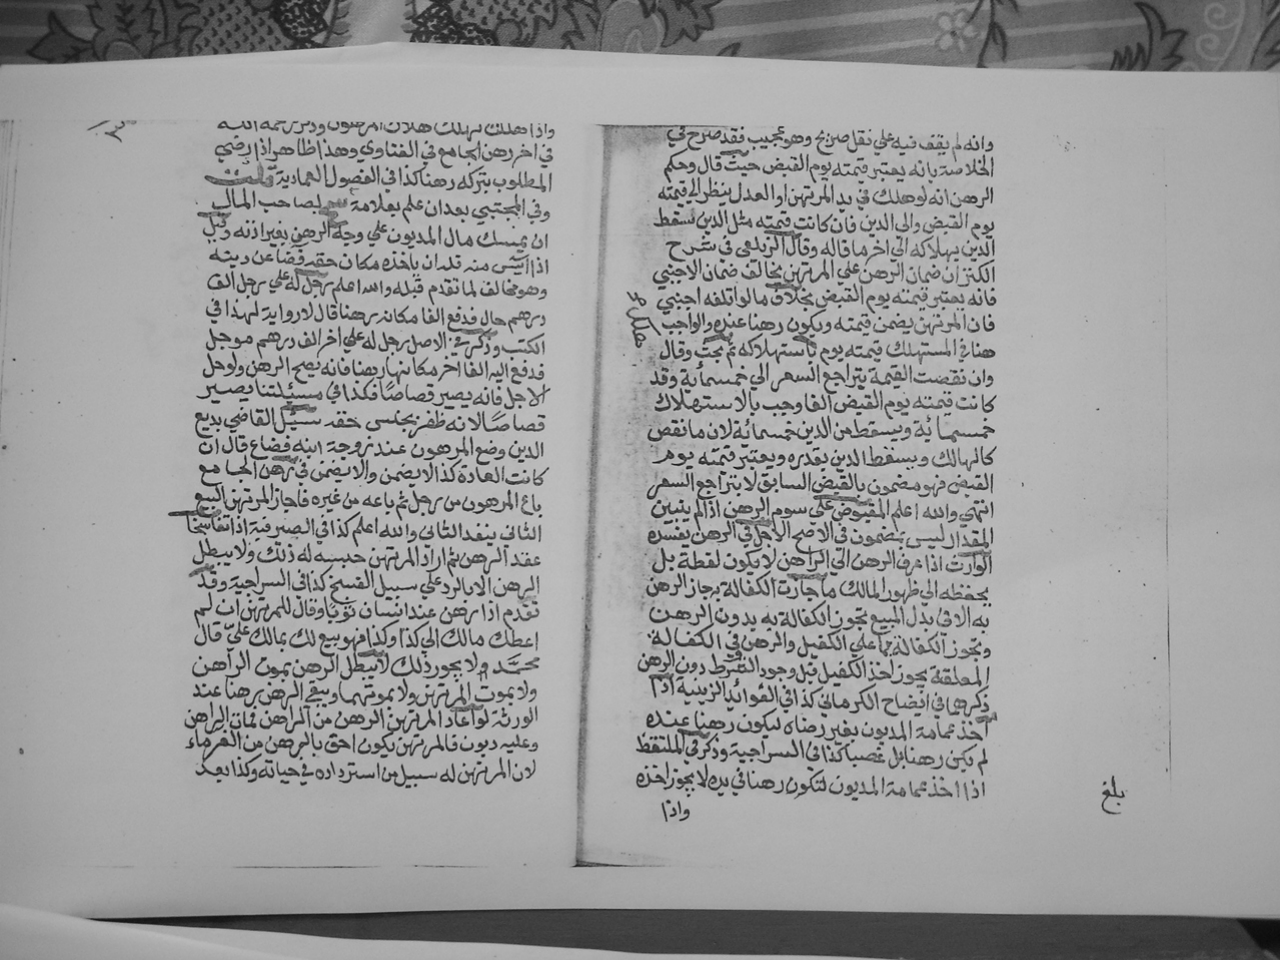 وانه لم يقف فيه علي نقل صريح وهو عجيب فقد صرح في
الخلاصة بانه يعتبر قيمته يوم القبض حيث قال وحكم
الرهن انه لو هلك في يد المرتهن او العدل ينظر الي قيمته
يوم القبض والي الدين فان كانت قيمته مثل الدين سقط
الدين بهلاكه الي اخر ما قاله وقال الزيلعي في شرح
الكنز ان ضمان الرهن علي المرتهن يخالف ضمان الاجنبي
فانه يعتبر قيمته يوم القبض بخلاف ما لو اتلفه اجنبي
فان المرتهن يضمن قيمته ويكون رهنا عنده والواجب
هنا في المستهلك قيمته يوم باستهلاكه ثم بحث وقال
وان نقصت القيمة بتراجع السعر الي خمسمأية وقد
كانت قيمته يوم القبض الفا وجب بالاستهلاك
خمسمأية ويسقط من الدين خمسمأية لان ما نقص
كالهالك ويسقط الدين بقدره ويعتبر قيمته يوم
القبض فهو مضمون بالقبض السابق لا بتراجع السعر
انتهي والله اعلم المقبوض علي سوم الرهن اذا لم يبين
المقدار ليس بمضمون في الاصح الاجل في الرهن يفسده
الوارث اذا عرف الرهن الي الراهن لا يكون لقطة بل
يحفظه الي ظهور المالك ما جازت الكفالة به جاز الرهن
به الا في بدل المبيع تجوز الكفالة به بدون الرهن
وتجوز الكفالة بما علي الكفيل والرهن في الكفالة
المعلقة يجوز اخذ الكفيل قبل وجود الشرط دون الرهن
ذكرهما في ايضاح الكرماني كذا في الفوائد الزينية اذا
اخذ عمامة المديون بغير رضاه ليكون رهنا عنده
لم يكن رهنا بل غصبا كذا في السراجية وذكر في الملتقط
اذا اخذ عمامة المديون لتكون رهنا في يده لا يجوز اخذه
واذا
بلغ
واذا هلك يهلك هلاك المرهون وذكر رحمه الله
في اخر رهن الجامع في الفتاوي وهذا ظاهر اذا رضي
المطلوب بتركه رهنا كذا في الفصول العمادية قلت
وفي المجتبي بعد ان علم بعلامة لصاحب المال
ان يمسك مال المديون علي وجه الرهن بغير اذنه وقيل
اذا ايس منه فله ان ياخذه مكان حقه قضا عن دينه
وهو مخالف لما تقدم قبله والله اعلم رجل له علي رجل الف
درهم حال فدفع الفا مكانه رهنا قال لا رواية لهذا في
الكتب وذكر في الاصل رجل له علي اخر الف درهم موجل
فدفع اليه الفا اخر مكانها رهنا فانه يصح الرهن ولو حل
الاجل فانه يصير قصاصا فكذا في مسئلتنا يصير
قصاصا لانه ظفر بجنس حقه سئيل القاضي بديع
الدين وضع المرهون عند زوجة ابنه فضاع قال ان
كانت العادة كذا لا يضمن والا يضمن في رهن الجامع
باع المرهون من رجل ثم باعه من غيره فاجاز المرتهن البيع
الثاني ينفذ الثاني والله اعلم كذا في الصيرفية اذا تفاسخا
عقد الرهن ثم اراد المرتهن حبسه له ذلك ولا يبطل
الرهن الا بالرد علي سبيل الفسخ كذا في السراجية وقد
تقدم اذا رهن عند انسان ثوبا وقال للمرتهن ان لم
اعطك مالك الي كذا وكذا فهو بيع لك بمالك عليّ قال
محمد ولا يجوز ذلك لا يبطل الرهن بموت الراهن
ولا بموت المرتهن ولا بموتهما ويبقي الرهن رهنا عند
الورثة لو اعاد المرتهن الرهن من الراهن فمات الراهن
وعليه ديون فالمرتهن يكون احق بالرهن من الغرماء
لان المرتهن له سبيل من استرداده في حياته وكذا بعد